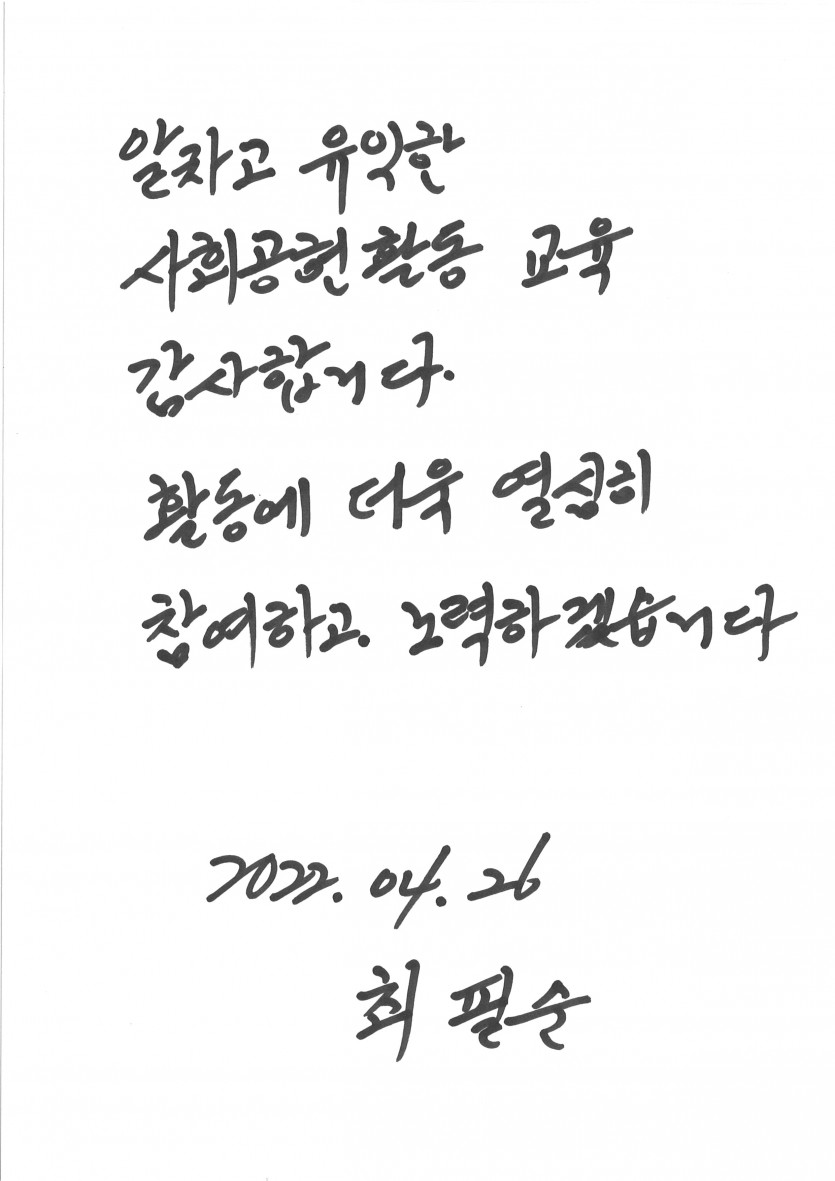 알차고 유익한
사회공헌활동 교육
감사합니다.
활동에 더욱 열심히
참여하고. 노력하겠습니다
2022. 04. 26
최필순